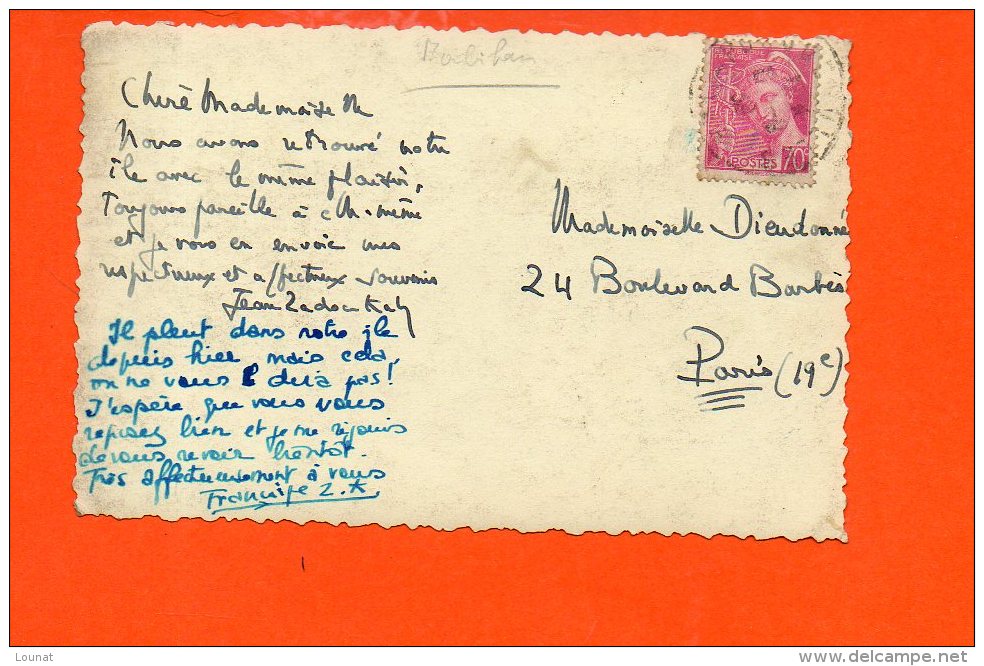 Morbihan
Chère Mademoiselle
Nous avons retrouvé notre
île avec le même plaisir,
Toujours pareille à elle-même
et je vous en envoie mes
respectueux et affectueux souvenirs
Jean Zadoc Kahn
Il pleut dans notre île
depuis hier, mais cela,
on ne vous le dira pas!
J'espère que vous vous
reposez bien et je me réjouis
de vous revoir bientôt.
Très affectueusement à vous
Françoise Z.K
REPUBLIQUE
FRANÇAISE
POSTES
70c
Mademoiselle Dieudonné
24 Boulevard Barbès
Paris (19e)
Lounat
delcampe.net